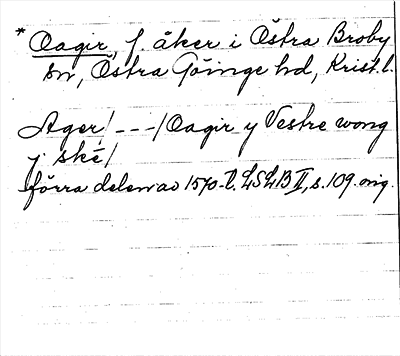 * Oagir, f. åker i Östra Broby
sn, Östra Göinge hd, Krist. l.
Ager/ - - -/Oagir y Vestre wong
y ské/
förra delen av 1570-t. LSLB II, s. 109. orig.